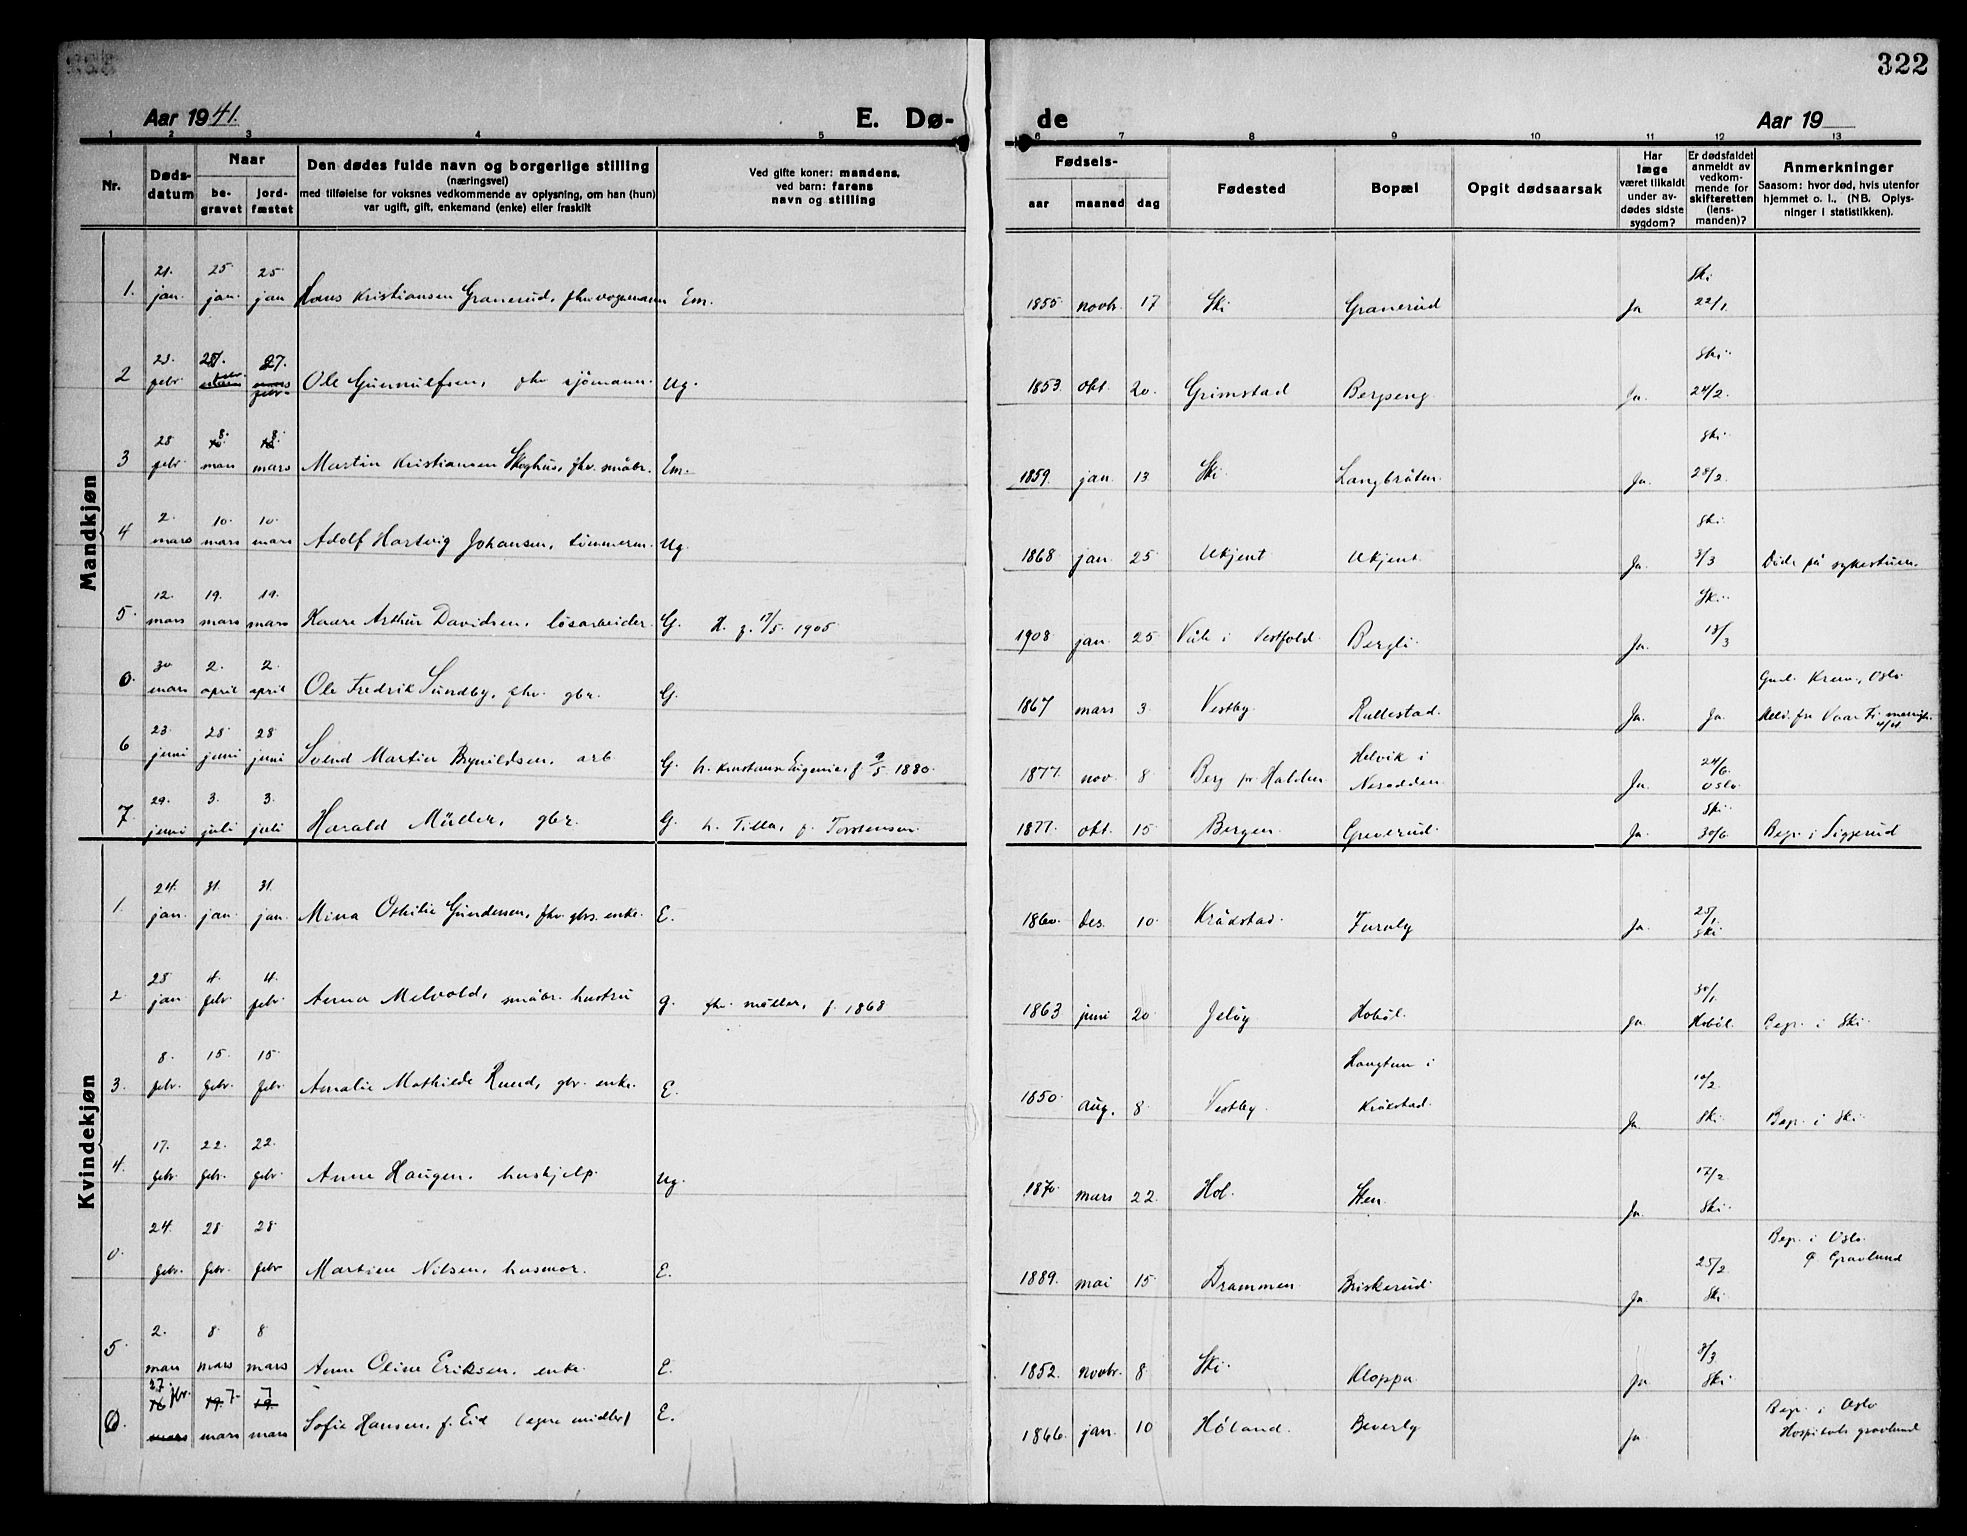 322
Aar 1941.
E. Dø-
de
Aar 19
1 2 3 4 5 6 7 8 9 10 11 12 13
Nr.
Døds-
datum
Naar
be-
gravet
jord-
fæstet
Den dødes fulde navn og borgerlige stilling
(næringsvei)
med tilføielse for voksnes vedkommende av oplysning, om han (hun)
var ugift, gift, enkemand (enke) eller fraskilt
Ved gifte koner: mandens,
ved barn: farens
navn og stilling
Fødsels-
aar maaned dag
Fødested
Bopæl
Opgit dødsaarsak
Har
læge
været tilkaldt
under av-
dødes sidste
sygdom?
Er dødsfaldet
anmeldt av
vedkom-
mende for
skifteretten
(lens-
manden)?
Anmerkninger
Saasom: hvor død, hvis utenfor
hjemmet o. l., (NB. Oplys-
ninger i statistikken).
Mandkjøn
21. 25 25 Ski
1. jan. jan. jan Hans Kristiansen Granerud, fhv vognmann Em. 1855 novbr. 17 Ski Granerud Ja 22/1.
23. 27. Ski
2 febr. febr. mars febr. Ole Gunnulfsen, fhv sjømann. Ug. 1853. okt. 20. Grimstad Bergseng Ja. 24/2.
28 8. 8. Ski
3 febr mars mars Martin Kristiansen Skoghus, fhv. småbr. Em. 1859. jan. 13 Ski Langbråten. Ja. 28/2.
2. 10. 10. Ski
4 mars mars mars Adolf Hartvig Johansen, tømmerm. Ug. 1868 jan. 25 Ukjent Ukjent Ja. 3/3 Døde på sykestuen.
12. 19. 19. Ski
5. mars mars mars Kaare Arthur Davidsen, løsarbeider G. 1905 1908 jan. 25 Våle i Vestfold Bergli Ja. 13/3
30 2. 2. Krem., Oslo
0. mars april april Ole Fredrik Sundby, fhv. gbr. G. 1867 mars 3. Vestby. Rullestad. Ja. Ja.
23. 28 28 24/6
6 juni juni juni Svend Martin Brynildsen, arb G. f. 9/5 1880. 1877. nov. 8 Berg pr Halden Helvik i Nesodden. Ja. Oslo
29. 3. 3. Ski
7. juni juli juli Harald Müller, gbr. G. h. Tilla, f. Torstensen 1877. okt. 15 Bergen Greverud. Ja. 30/6. Begr. i Siggerud
Kvindekjøn
24. 31. 31. 25/1.
1. jan. jan. jan. Mina Othilie Gundersen, fhv. gbrs. enke. E. 1860. des. 10 Kråkstad Furuly Ja. Ski
28 4. 4. 30/1.
2. jan febr. febr. Anna Melvold, småbr. hustru g. fhv. møller, f. 1868 1863 juni 20 Jeløy Hobøl. Ja Hobøl. Begr. i Ski.
8. 15. 15 Langtun i 10/2
3. febr. febr. febr. Amalie Mathilde Ruud, gbr. enke. E. 1850. aug. 8 Vestby. Kråkstad. Ja. Ski. Begr. i Ski
17. 22. 22. 17/2
4. febr. febr. febr. Anne Haugen, hushjelp. Ug. 1870. mars 22. Hol. Sten. Ja. Ski.
24. 28 28 25/2 Begr. i Oslo. Gravlund
0. febr. febr. febr Martine Nilsen, husmor. E. 1889. mai 15 Drammen Briskerud. Ja. Ski.
2. 8 8 8/3
5 mars mars mars Anne Oline Eriksen, enke E. 1852. novbr. 8 Ski. Kloppa Ja Ski
27. fbr. 7 7 Begr. i Oslo
16 19. 19.
mars mars mars Sofie Hansen, f. Eid (egne midler) E. 1866. jan. 10 Høland. Beverly Ja Hospitals gravlund